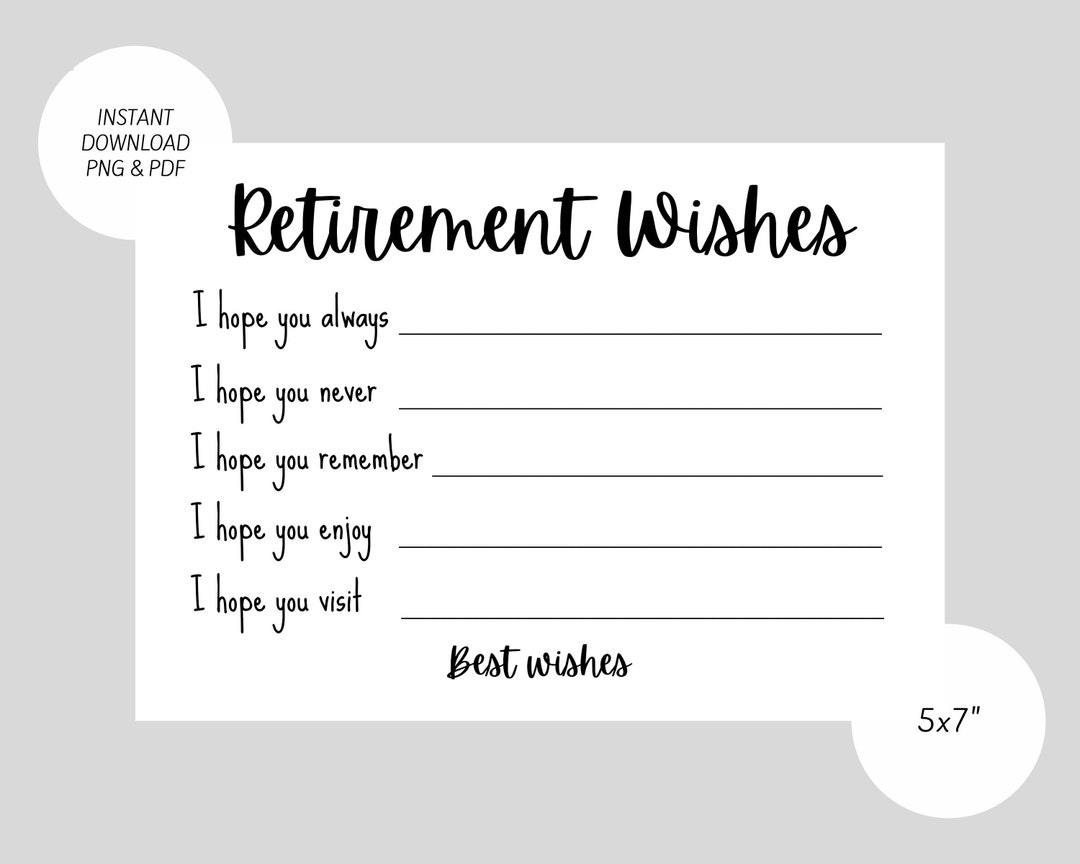 INSTANT
DOWNLOAD
PNG & PDF
Retirement Wishes
I hope you always
I hope you never
I hope you remember
I hope you enjoy
I hope you visit
Best wishes
5x7"